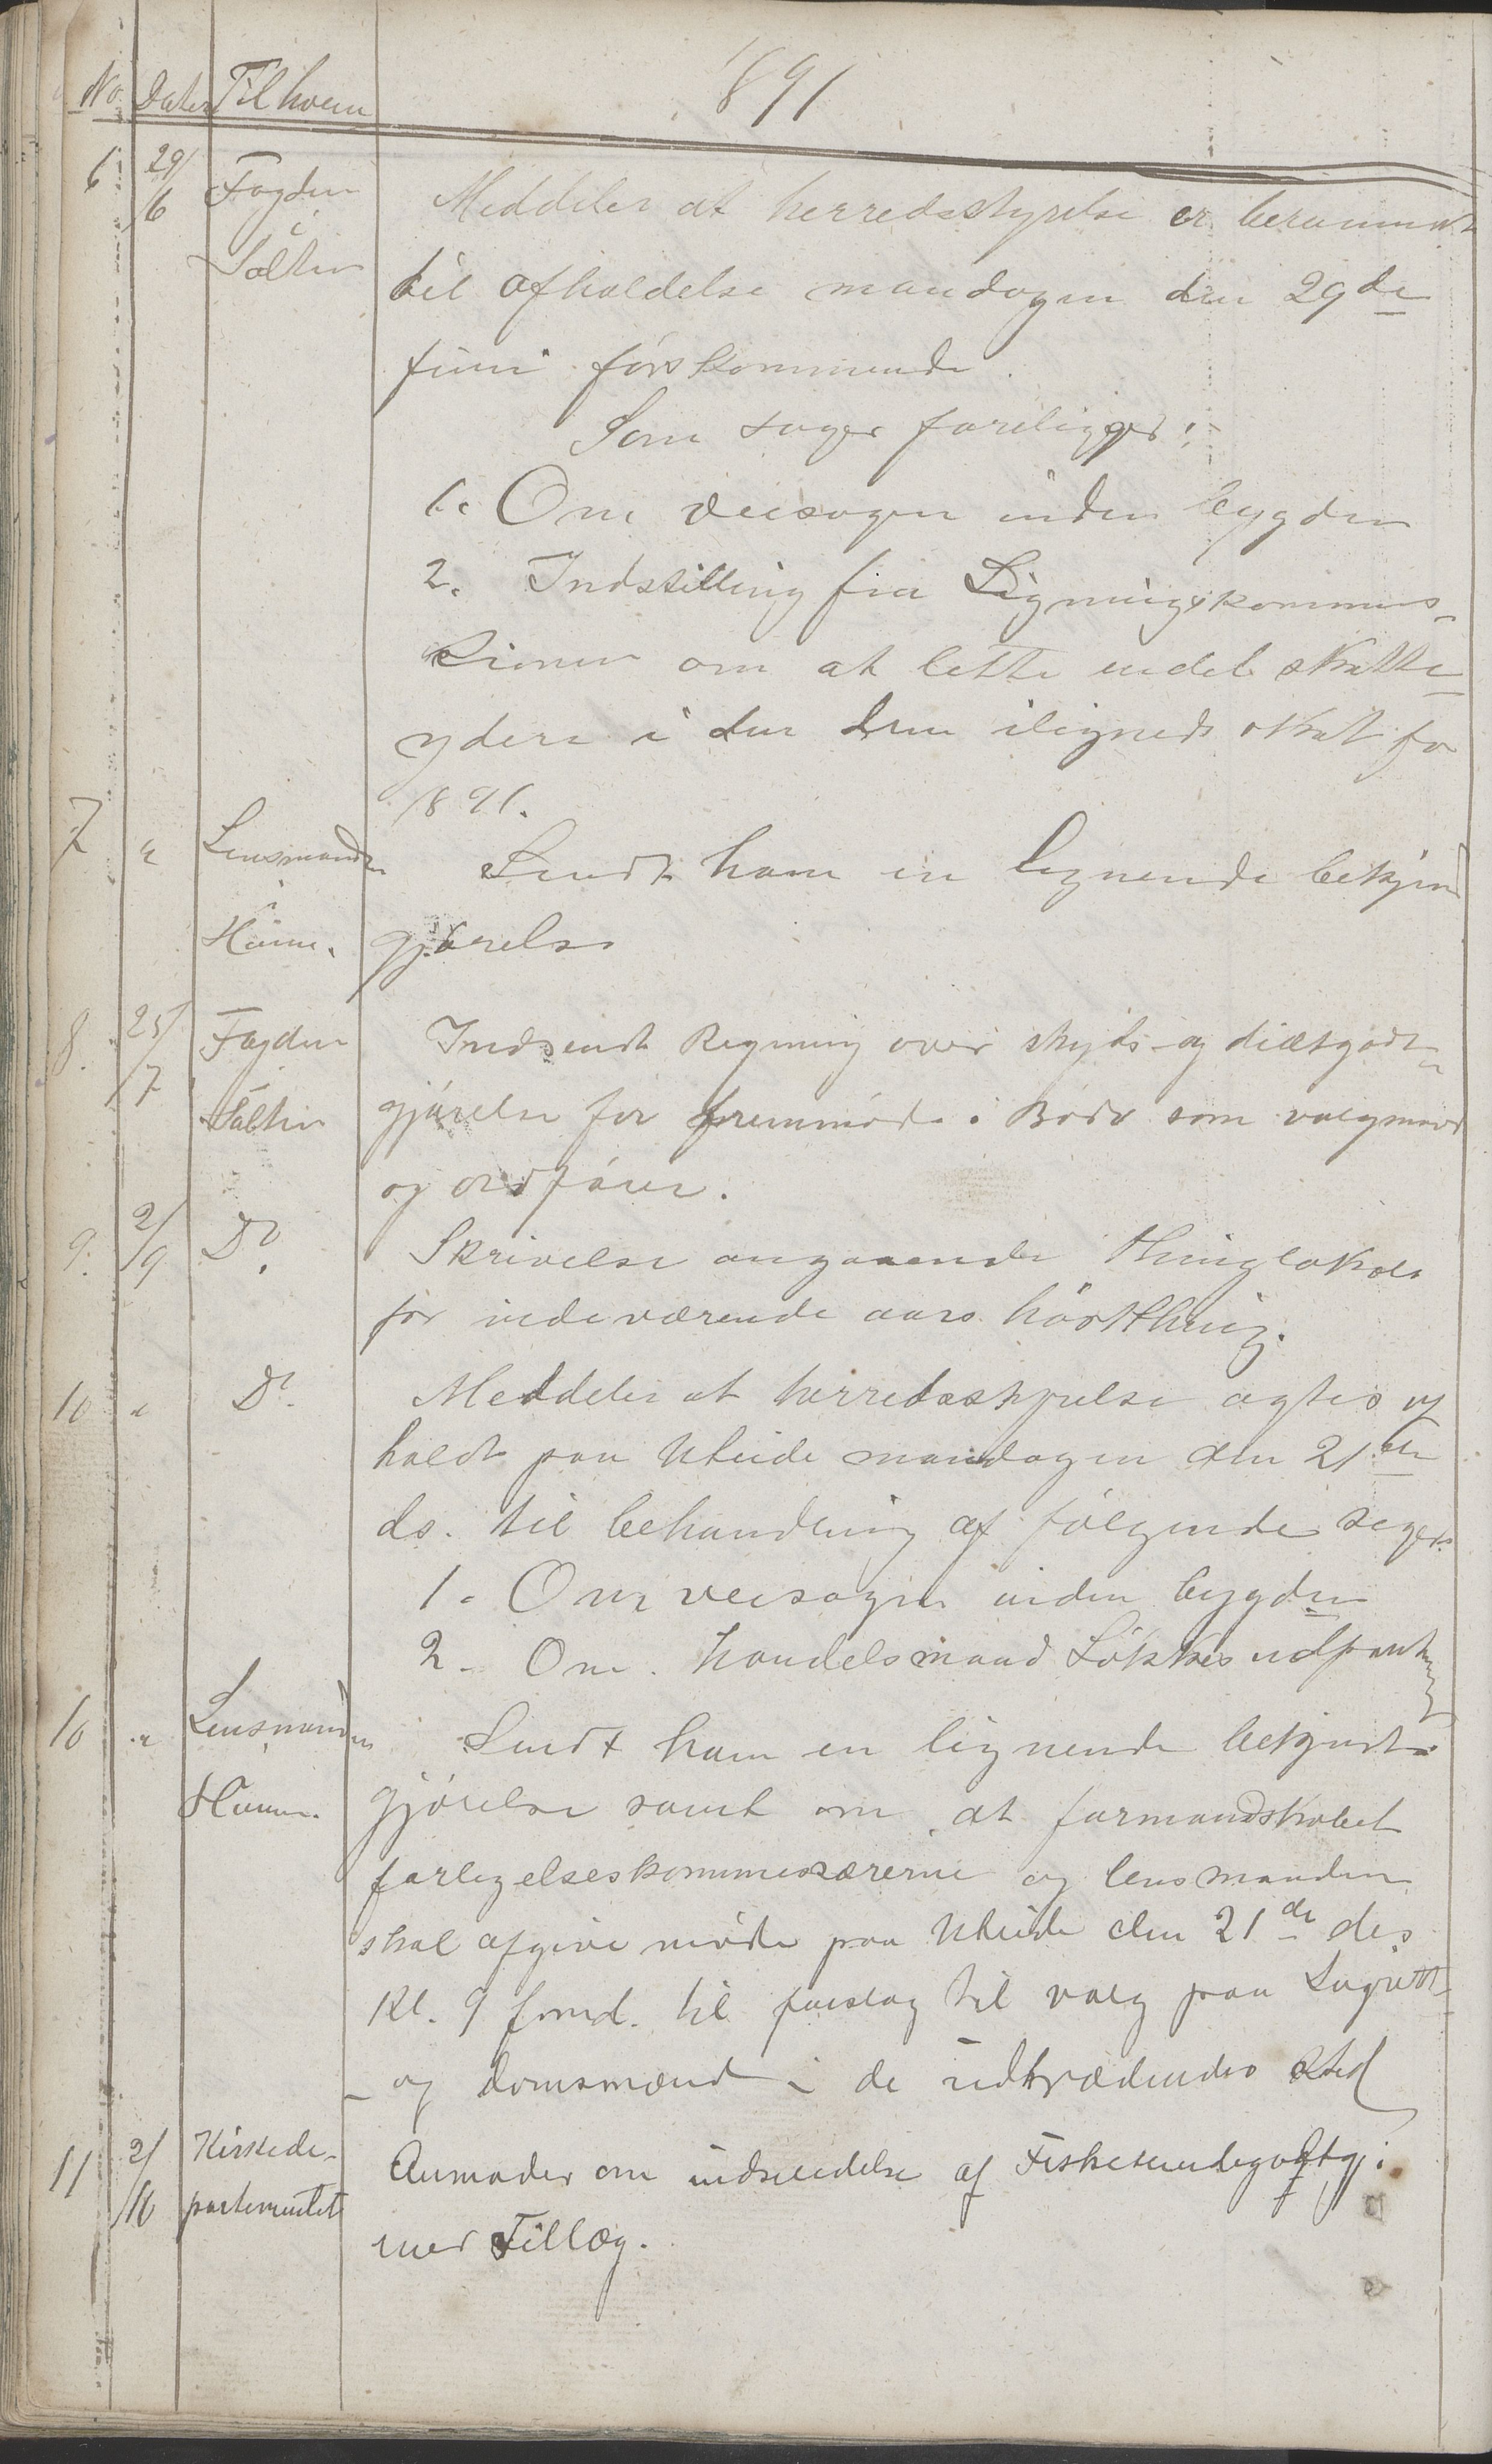 1891
No. Dato Til hvem
6 29/6 Fogden i Salten
Meddeler at herredsstyrelse er berammet
til afholdelse mandagen den 29de
juni førstkommende.
Som sager foreligger:
1. Om veisagen inden bygden
2. Indstilling fra Ligningskommis-
sionen om at lette endel skatte-
ydere i den dem ilignede skat for
1891.
7 " Lensmanden i Ham.
Sendt ham en lignende bekjend
gjørelse
8. 25/7 Fogden Salten
Indsendt Regning over skyds- og diætgodt-
gjørelse for fremmøde i Bodø som valgmand
og ordfører.
9. 2/9 Do.
Skrivelse angaaende Thinglokale
for indeværende aars høstthing.
10 " Do.
Meddeler at herredsstyrelse agtes af
holdt paa Uteide mandagen den 21de
ds. til behandling af følgende sager.
1. Om veisagen inden bygden
2. Om handelsmand Løkkes udpantning
10 " Lensmanden Ham.
Sendt ham en lignende bekjendt-
gjørelse samt om at formandskabet
forligelseskommissærerne og lensmanden
skal afgive møde paa Uteide den 21de ds
Kl. 9 formd. til forslag til valg paa Lagrett
- og domsmænd i de udtrædendes sted
11 2/10 Kirkede-
partementet
Anmoder om indsendelse af
med Tillæg.